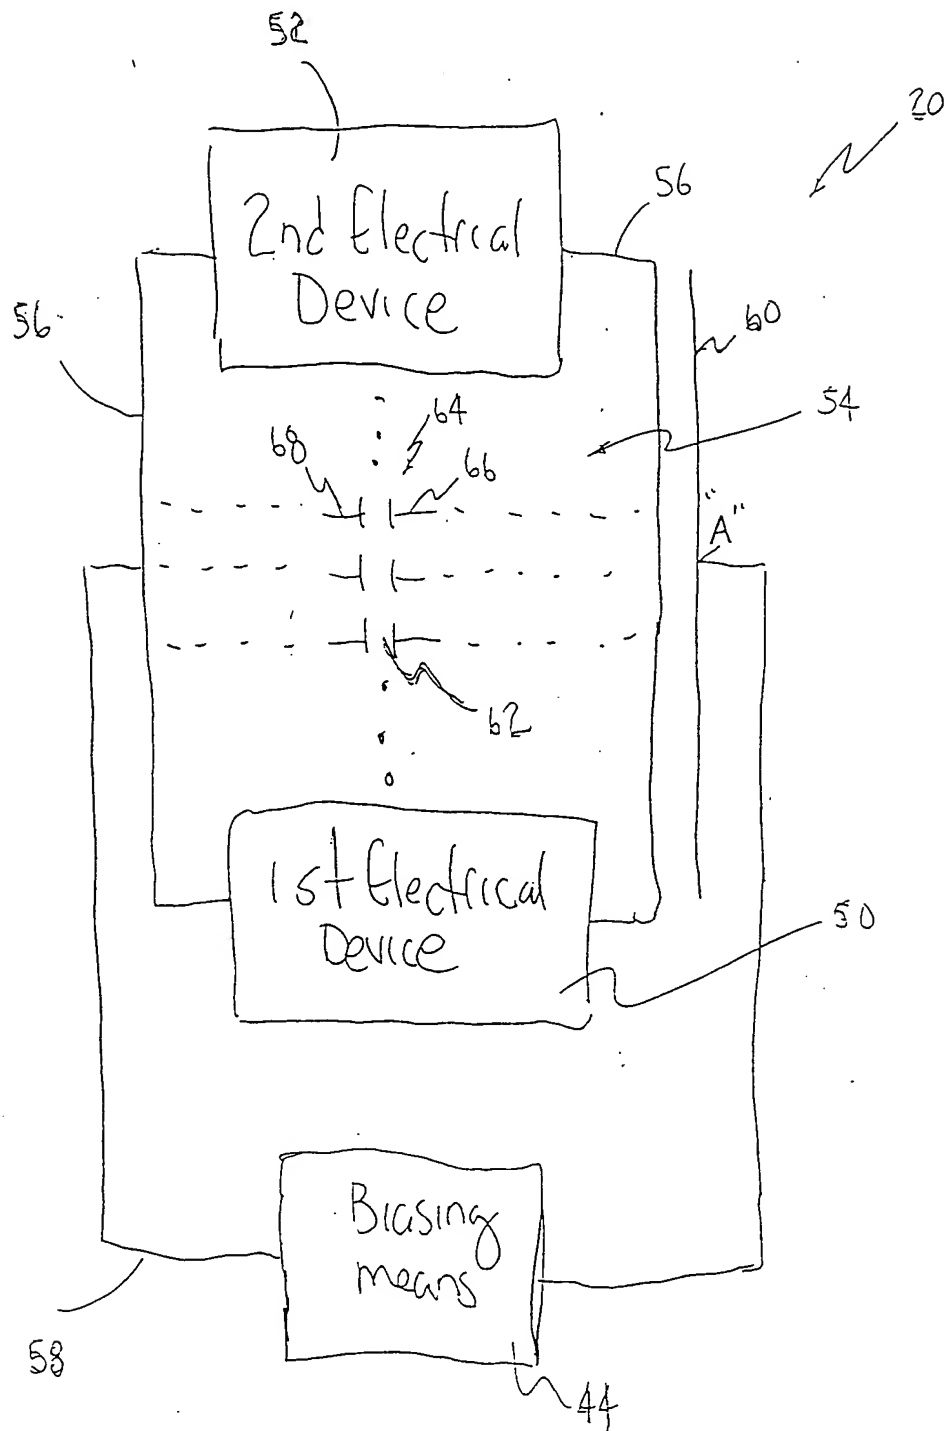 52
20
2nd Electrical
Device
56
56
60
54
64
68
66
"A"
62
1st Electrical
Device
50
Biasing
means
58
44